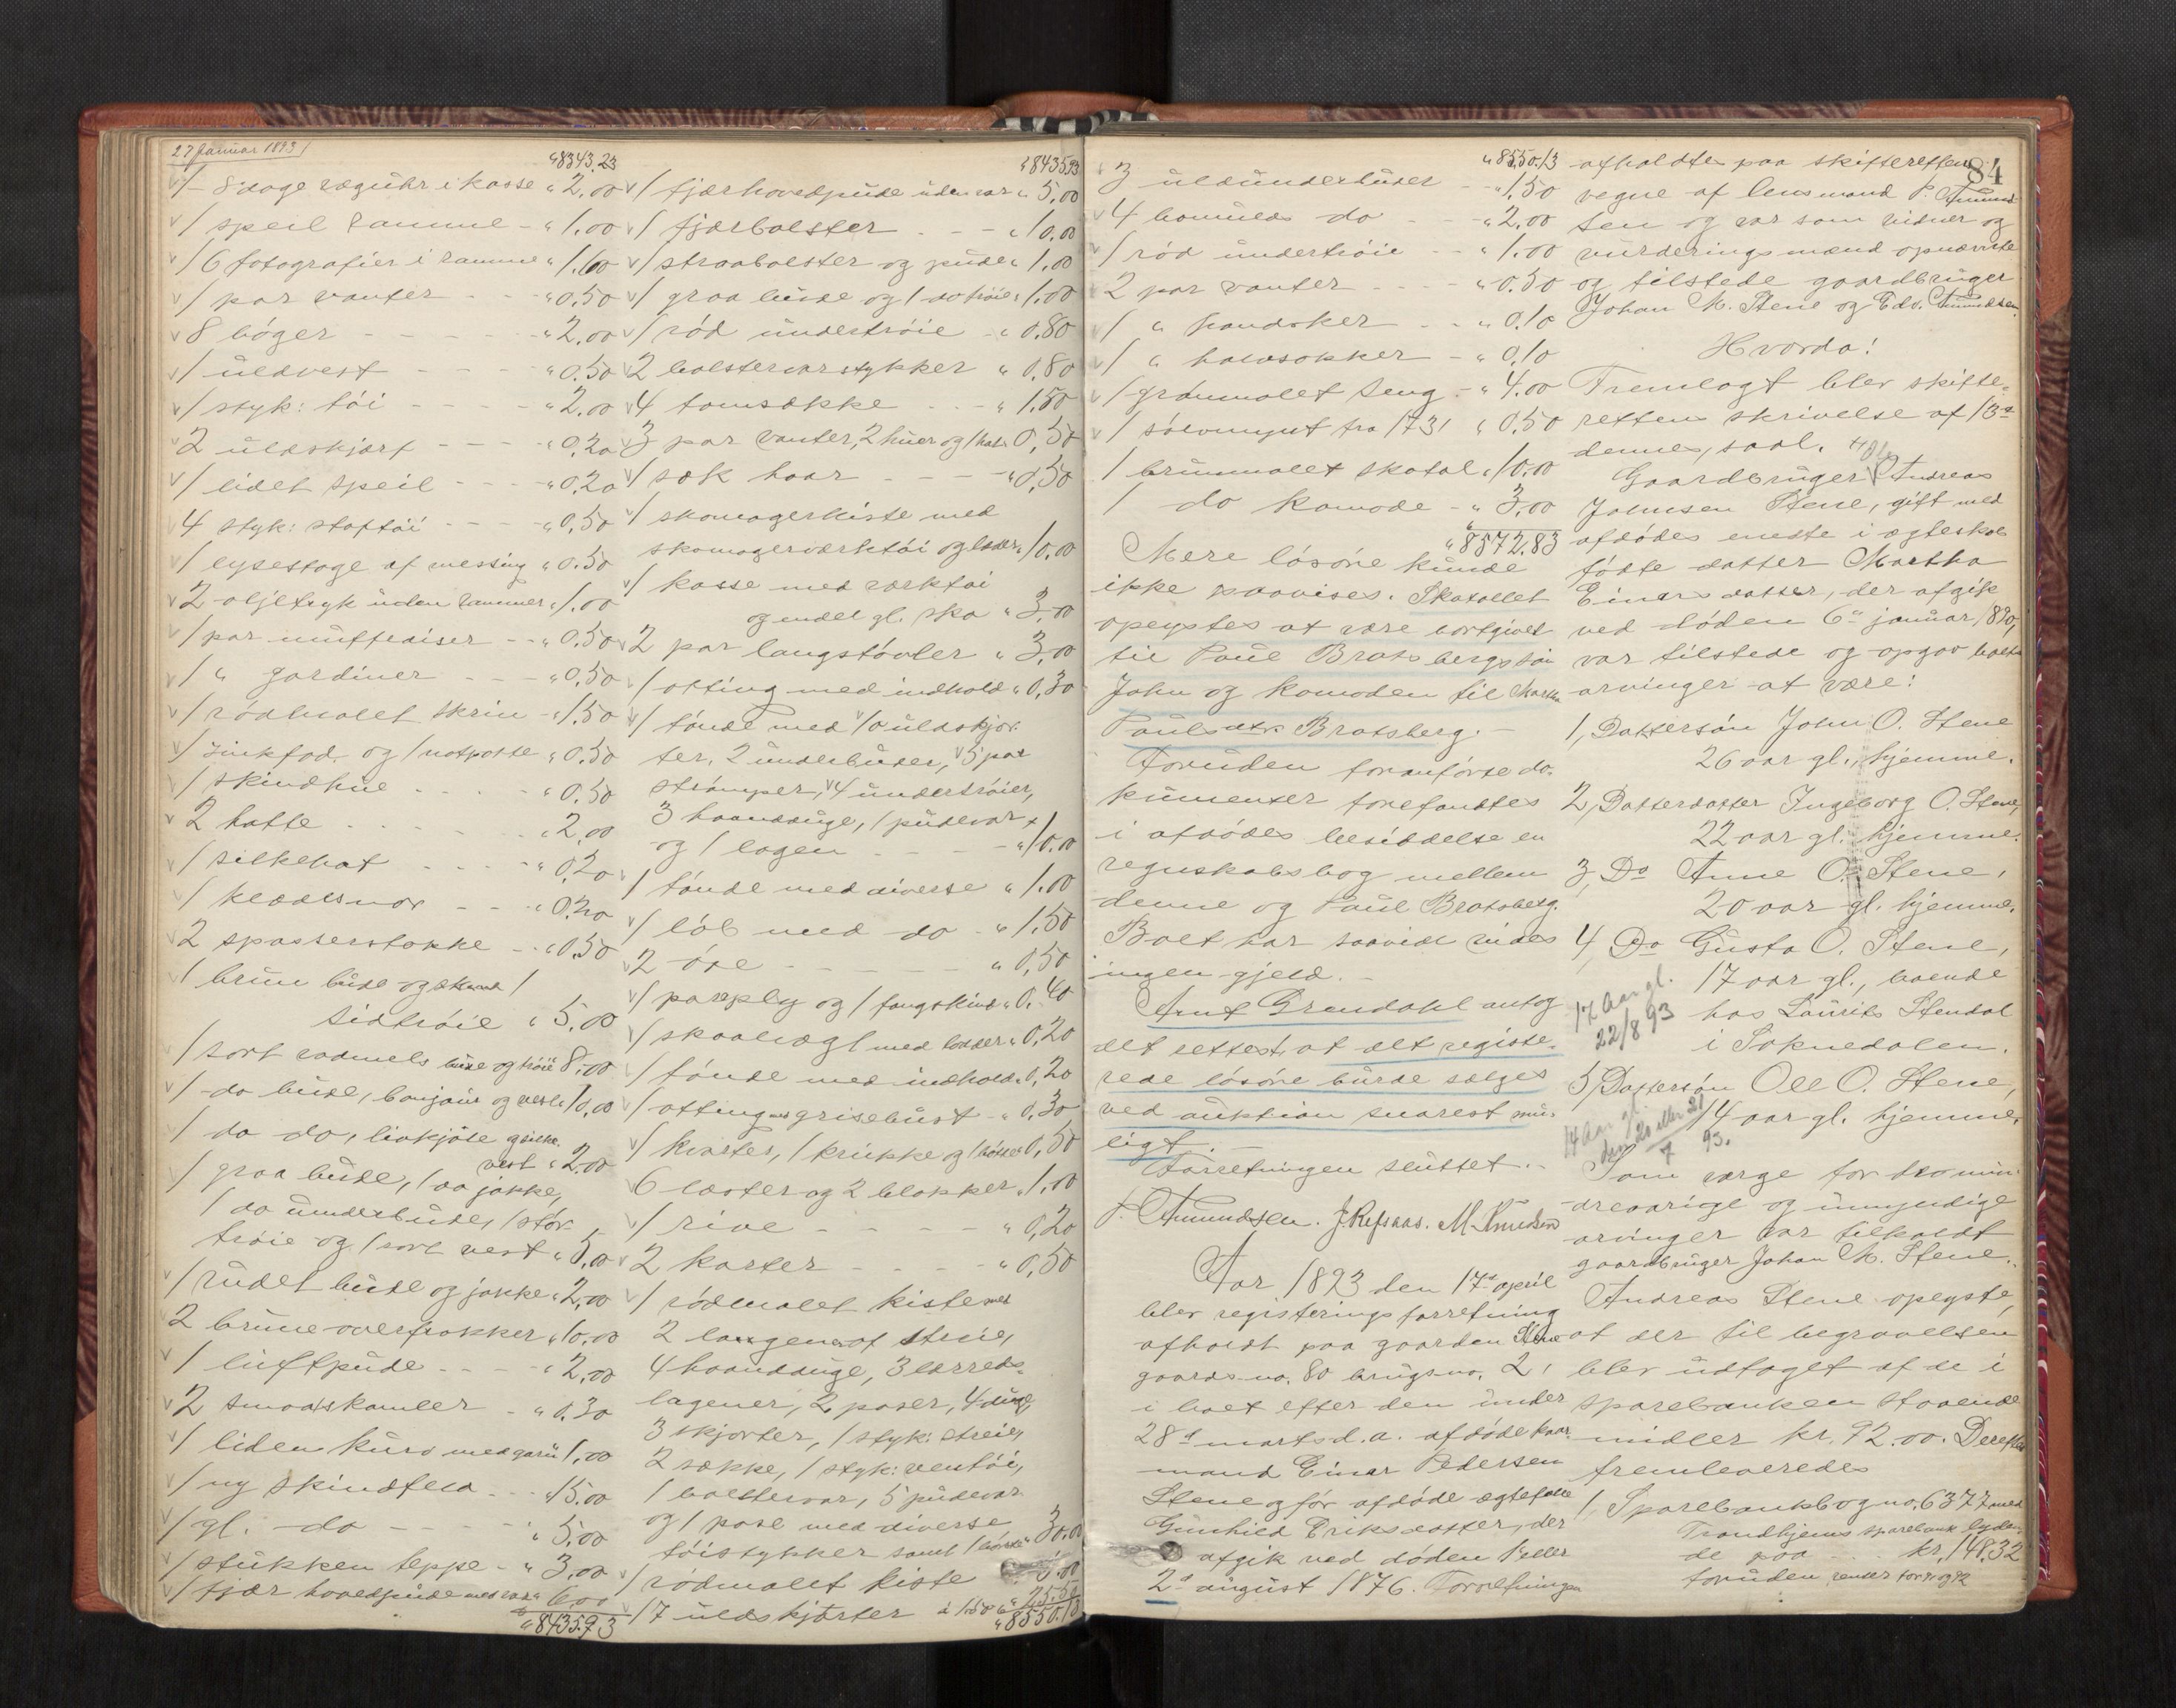 27 Januar 1893
" 8343.23
1 8 dage væguhr i kasse " 2.00
1 speil ramme - " 1.00
6 fotografier i ramme " 1.60
1 par vanter - - - " 0.50
8 bøger - - - - " 2.00
1 uldvest - - - " 0.50
1 styk: tøi - - - - " 2.00
2 uldskjærf - - - - " 0.20
1 lidet speil - - - " 0.20
4 styk: stoftøi - - - " 0.50
1 lysestage af messing " 0.50
2 oljetryk uden rammer " 1.00
1 par muffediser - - " 0.50
1 " gardiner - - - " 0.50
1 rødmalet skrin - " 1.50
1 zinkfad og 1 natpotte " 0.50
1 skindhue - - - - " 0.50
2 hatte - - - - - " 2.00
1 silkehat - - - - " 0.20
1 klædesnor - - - " 0.20
2 spasserstokke - - " 0.50
1 brun buxe og 1
sidtrøie " 5.00
1 sort vadmels buxe og trøie 8.00
1 do buxe, bonjour og vest " 10.00
1 do do, livkjole og silke-
vest " 2.00
1 graa buxe, 1 do jakke,
1 do underbuxe, 1 stor
trøie og 1 sort vest " 5.00
1 rudet buxe og jakke " 2.00
2 brune overfrakker " 10.00
1 luftpude - - - " 2.00
2 smaaskamler - " 0.30
1 liden kurv med garn 1.00
1 ny skindfeld - - " 15.00
1 gl. do - - - " 5.00
1 stukken teppe - " 3.00
1 fjær hovedpude med var " 6.00
" 8435.93
" 8435.93
1 fjærhovedpude uden var " 5.00
1 fjærbolster - - " 10.00
1 straabolster og pude " 1.00
1 graa buxe og 1 do trøie " 1.00
1 rød undertrøie " 0.80
2 bolstervarstykker " 0.80
4 tomsække - - " 1.50
3 par vanter, 2 huer og 1 hat " 0,50
1 sæk haar - - - " 0,50
1 skomagerkiste med
skomagerværktøi og læder " 10.00
1 kasse med værktøi
og endel gl. sko " 3.00
2 par langstøvler " 3.00
1 otting med indhold " 0,30
1 tønde med 10 uldskjor-
ter, 2 underbuxer, 5 par
strømper, 4 undertrøier,
3 haandduge, 1 pudevar
og 1 lagen - - - " 10.00
1 tønde med diverse " 1.00
1 løb med do - " 1,50
2 øxe - - - - " 0,50
1 paraply og 1 fangskind " 0.40
1 skaalvægt med lodder " 0,20
1 tønde med indhold " 0,20
1 otting med grisebust - " 0,30
1 kvarter, 1 krukke og 1 bøtte " 0,50
6 læster og 2 blokker " 1.00
1 rive - - - " 0,20
2 karter - - - - " 0,50
1 rødmalet kiste med
2 lagener af strie,
4 haandduge, 3 lærreds-
lagener, 2 poser, 4 duge,
3 skjorter, 1 styk: streier
2 sække, 1 styk: ventøi,
1 bolstervar, 5 pudevar
og 1 pose med diverse
tøistykker samt 1 børste " 30.00
1 rødmalet kiste 5.00
17 uldskjorter à 1.50 " 25.50
" 8550.13
84
" 8550.13
3 uldunderbuxer " 1.50
4 bomulds do - - " 2.00
1 rød undertrøie - - " 1.00
2 par vanter - - - - " 0.50
1 " handsker - - " 0.10
1 " halvsokker - " 0.10
1 grønmalet seng - " 4.00
1 sølvmynt fra 1731 " 0.50
1 brunmalet skatol " 10.00
1 do komode - " 3.00
" 8572.83
Mere løsøre kunde
ikke paavises. Skatollet
oplystes at være bortgivet
til Paul Bratsbergs søn
John og komoden til Martha
Paulsdtr Bratsberg. -
Foruden foranførte do-
kumenter forefandtes
i afdødes besiddelse en
regnskabsbog mellem
denne og Paul Bratsberg.
Boet har saavidt vides
ingen gjeld. -
Arnt Grendahl antog
det rettest, at alt registe-
rede løsøre burde sælges
ved auktion snarest mu-
ligt. -
Forretningen sluttet. -
P. Amundsen. J. Refsaas. M. Knudsen
Aar 1893 den 17de april
blev registeringsforretning
afholdt paa gaarden Stene
gaards no. 80 brugs no. 2,
i boet efter den under
28de marts d.a. afdøde kaar-
mand Einar Pedersen
Stene og før afdøde ægtefælle
Gunhild Eriksdatter, der
afgik ved døden 1 eller
2de august 1876. Forretningen
afholdtes paa skifterettens
vegne af lensmand P. Amund-
sen og var som vidner og
vurderingsmænd opnævnte
og tilstede gaardbruger
Johan M. Stene og Edv. Amundsen.
Hvorda!
Fremlagt blev skifte-
rettens skrivelse af 13de
dennes, saal.
Gaardbruger Andreas
Johnsen Stene, gift med
afdødes eneste i ægteskab
fødte datter Martha
Einarsdatter, der afgik
ved døden 6te januar 1890,
var tilstede og opgav boets
arvinger at være:
1, Dattersøn John O. Stene
26 aar gl., hjemme.
2, Datterdatter Ingeborg O. Stene,
22 aar gl. hjemme.
3, Do Anne O. Stene,
20 aar gl. hjemme.
4, Do Gusta O. Stene,
17 aar gl., boende
hos Laurits Stendal
i Soknedalen.
17 Aar gl.
22/8 93
5, Dattersøn Ole O. Stene,
14 aar gl. hjemme.
14 Aar gl.
den 20 eller 21
7 93.
Som værge for de min-
dreaarige og umyndige
arvinger var tilkaldt
gaardbruger Johan M. Stene.
Andreas Stene oplyste,
at der til begravelsen
blev udtaget af de i
sparebanken staaende
midler kr. 92.00. Derefter
fremleveredes
1, Sparebankbog no. 6377 med
Trondhjems sparebank lyden-
de paa - - - kr. 148.32
foruden renter for 91 og 92